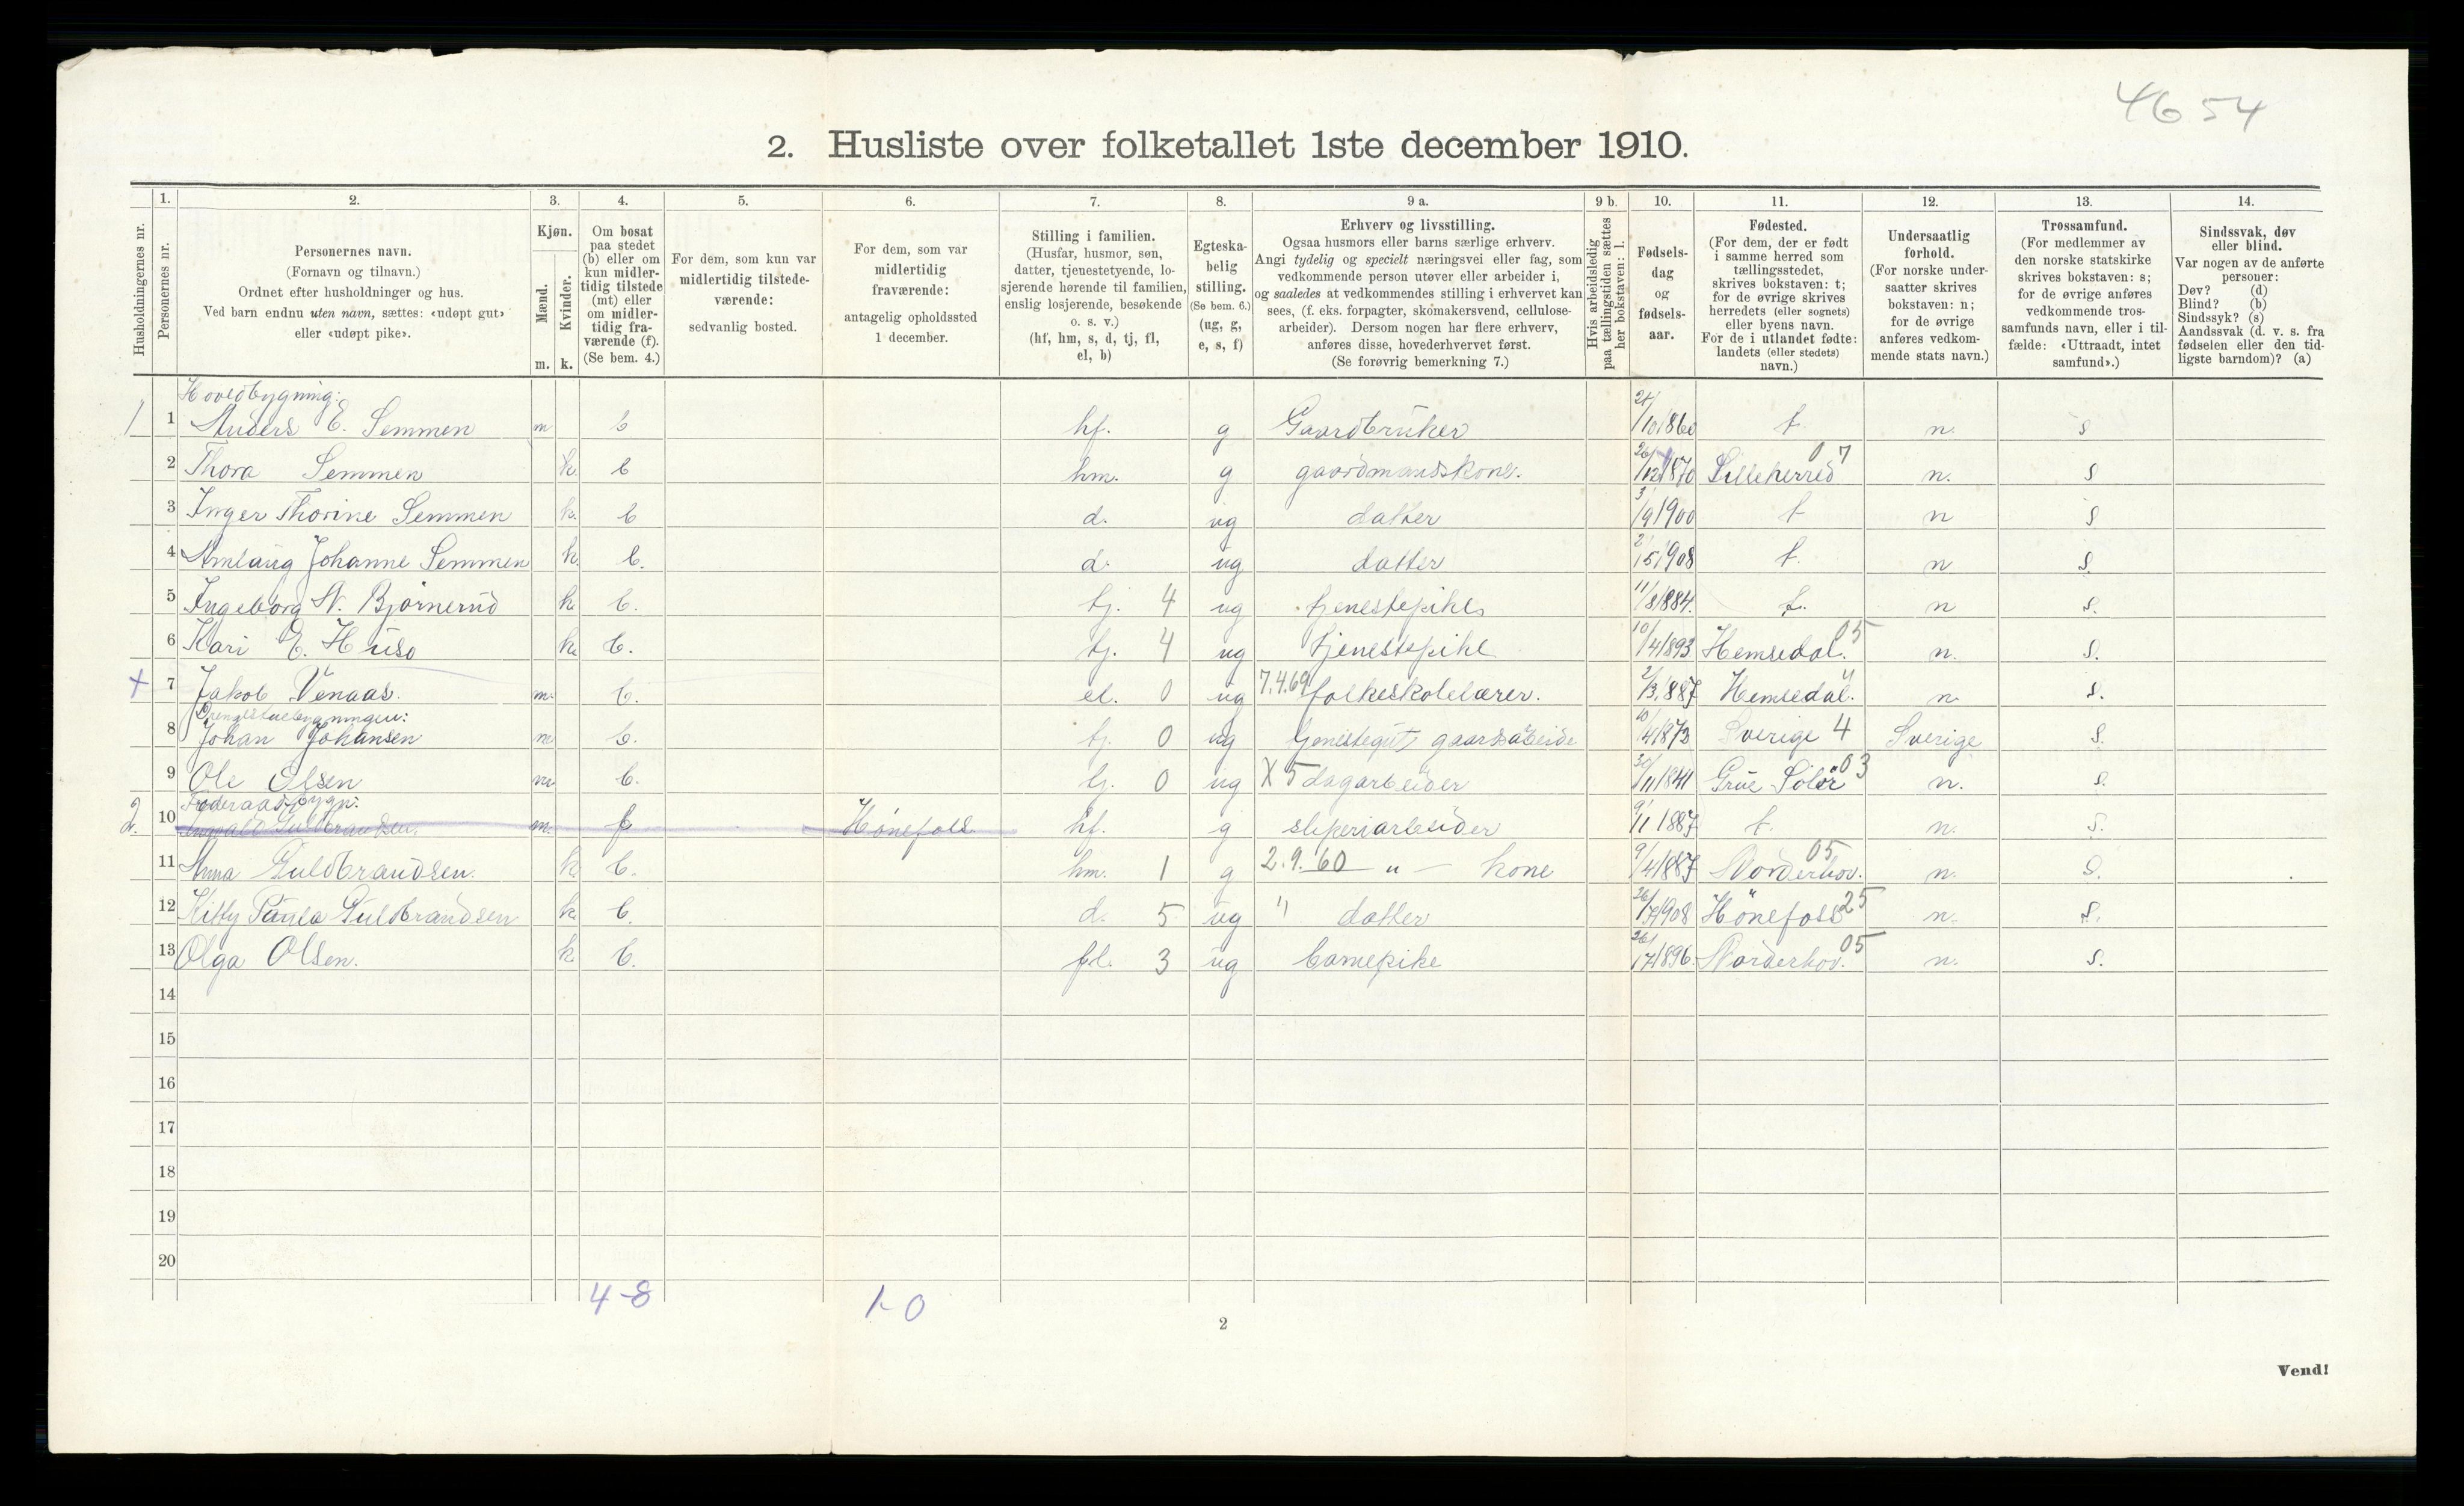 4654
2. Husliste over folketallet 1ste december 1910.
1. 2. 3. 4. 5. 6. 7. 8. 9 a. 9 b. 10. 11. 12. 13. 14.
Husholdningernes nr.
Personernes nr.
Personernes navn.
(Fornavn og tilnavn.)
Ordnet efter husholdninger og hus.
Ved barn endnu uten navn, sættes: «udøpt gut»
eller «udøpt pike».
Kjøn.
Mænd.
m.
Kvinder.
k.
Om bosat
paa stedet
(b) eller om
kun midler-
tidig tilstede
(mt) eller
om midler-
tidig fra-
værende (f).
(Se bem. 4.)
For dem, som kun var
midlertidig tilstede-
værende:
sedvanlig bosted.
For dem, som var
midlertidig
fraværende:
antagelig opholdssted
1 december.
Stilling i familien.
(Husfar, husmor, søn,
datter, tjenestetyende, lo-
sjerende hørende til familien,
enslig losjerende, besøkende
o. s. v.)
(hf, hm, s, d, tj, fl,
el, b)
Egteska-
belig
stilling.
(Se bem. 6.)
(ug, g,
e, s, f)
Erhverv og livsstilling.
Ogsaa husmors eller barns særlige erhverv.
Angi tydelig og specielt næringsvei eller fag, som
vedkommende person utøver eller arbeider i,
og saaledes at vedkommendes stilling i erhvervet kan
sees, (f. eks. forpagter, skomakersvend, cellulose-
arbeider). Dersom nogen har flere erhverv,
anføres disse, hovederhvervet først.
(Se forøvrig bemerkning 7.)
Hvis arbeidsledig
paa tællingstiden sættes
her bokstaven: l.
Fødsels-
dag
og
fødsels-
aar.
Fødested.
(For dem, der er født
i samme herred som
tællingsstedet,
skrives bokstaven: t;
for de øvrige skrives
herredets (eller sognets)
eller byens navn.
For de i utlandet fødte:
landets (eller stedets)
navn.)
Undersaatlig
forhold.
(For norske under-
saatter skrives
bokstaven: n;
for de øvrige
anføres vedkom-
mende stats navn.)
Trossamfund.
(For medlemmer av
den norske statskirke
skrives bokstaven: s;
for de øvrige anføres
vedkommende tros-
samfunds navn, eller i til-
fælde: «Uttraadt, intet
samfund».)
Sindssvak, døv
eller blind.
Var nogen av de anførte
personer:
Døv? (d)
Blind? (b)
Sindssyk? (s)
Aandssvak (d. v. s. fra
fødselen eller den tid-
ligste barndom)? (a)
Hovedbygning:
1 1 Anders E. Semmen m b hf. g Gaardbruker 21/10 1860 t. n. s
2 Thora Semmen k. b hm. g gaardmandskone. 26/12 1870 Lilleherred 07 n. s
3 Inger Thorine Semmen k. b d. ug datter 3/9 1900 t n s
4 Amlaug Johanne Semmen k. b. d. ug datter 2/5 1908 t. n s.
5 Ingeborg N. Bjørnerud k. b. tj. 4 ug tjenestepike 11/8 1884. t. n s.
6 Kari E. Huso k. b. tj. 4 ug tjenestepike 10/4 1893 Hemsedal. 05 n. s.
+ 7 Jakob Venaas. m. b. el. 0 ug 7.4.69 folkeskolelærer. 2/3 1887 Hemsedal. " n. s.
Drengestuebygningen:
8 Johan Johansen m b. tj. 0 ug tjenestegut gaardsarbeide 10/4 1873 Sverige 4 Sverige s.
9 Ole Olsen m. b. tj. 0 ug X 5 dagarbeider 30/11 1841 Grue Solør 03 n. s.
Føderaadsbygn:
2. 10 Guldbrandsen. m. f Hønefoss hf. g sliperiarbeider 9/11 1887 t. n. s.
11 Anna Guldbrandsen. k. b. hm. 1 g 2.9.60 " — kone 9/4 1887 Norderhov. 05 n. s.
12 Kitty Paula Guldbrandsen k. b. d. 5 ug " datter 26/7 1908 Hønefoss 25 n. s.
13 Olga Olsen. k. b. fl. 3 ug barnepike 26/7 1896. Norderhov. 05 n. s.
14
15
16
17
18
19
20
4-8 1-0
2
Vend!